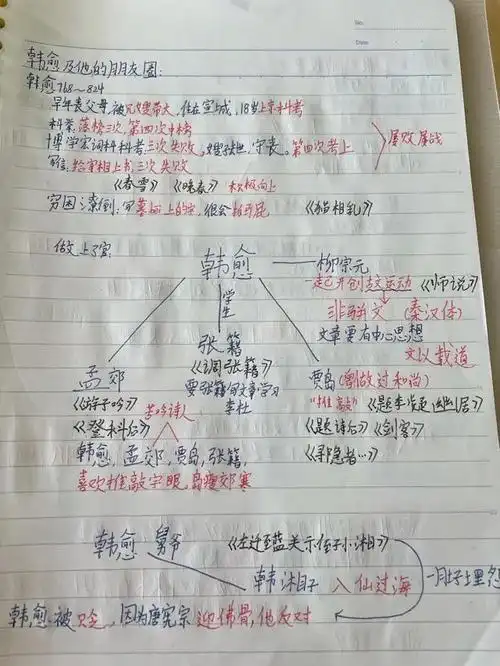 No.
Date
韩愈及他的朋友圈:
韩愈768~824
早年丧父母,被兄嫂带大,住在宣城,18岁上京科考
科举落榜三次,第四次中榜
博学宏词科科考三次失败,嫂去世,守丧。第四次考上
屡败屡战
给宰相上书三次失败
《春雪》 《晚春》 积极向上
穷困潦倒:写墓志上的字,很会拍马屁 《猫相乳》
做上了官:
韩愈 —— 柳宗元
一起开创古文运动 《师说》
学生
非骈文 (秦汉体)
张籍
文章要有中心思想
《调张籍》
文以载道
孟郊
要张籍向文章学习
李杜
贾岛 (刚做过和尚)
《游子吟》 苦吟诗人
"推敲" 《题李凝幽居》
《登科后》
《题诗后》《剑客》
韩愈,孟郊,贾岛,张籍,
《寻隐者…》
喜欢推敲字眼,岛瘦郊寒
韩愈 舅爷 《左迁至蓝关示侄孙湘》
韩湘子 八仙过海
韩愈被贬,因为唐宪宗迎佛骨,他反对